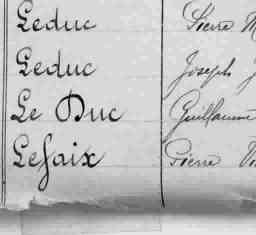 Leduc Pierre
Leduc Joseph
Le Duc Guillaume
Lefaix Pierre